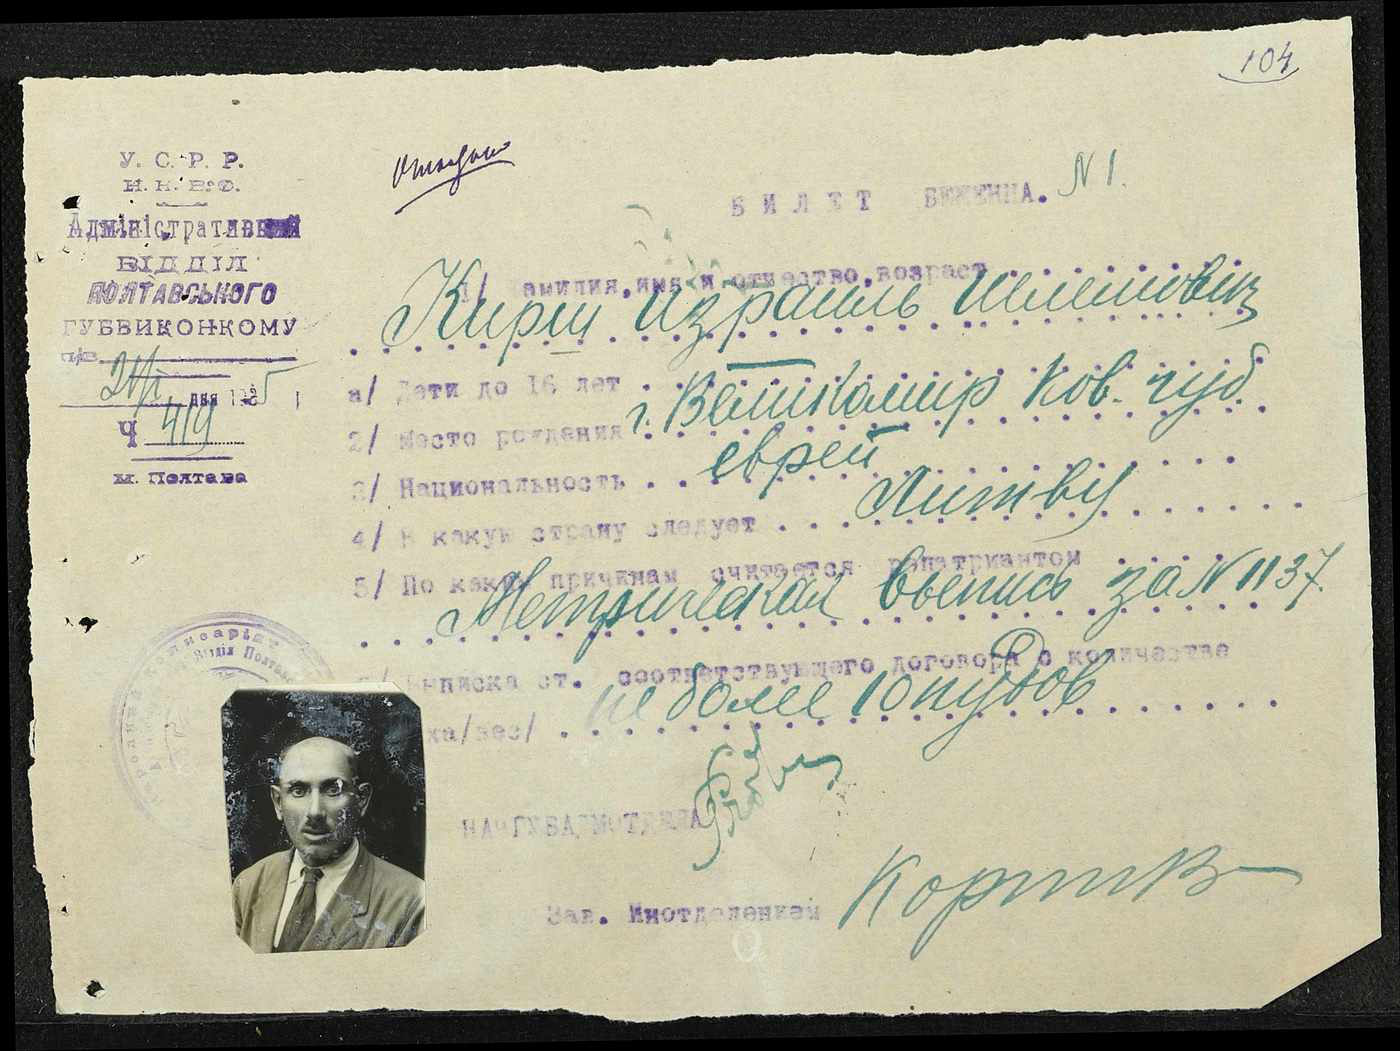 104
У. С. Р. Р.
Н. К. В. Ф.
Адміністративний
ВІДДІЛ
ПОЛТАВСЬКОГО
ГУБВИКОНКОМУ
дня 1925
Ч 419
м. Полтава
БИЛЕТ БЕЖЕНЦА. N 1.
1/ Фамилия, имя и отчество, возраст
Кирш Израиль Шлемович
а/ Дети до 16 лет
2/ Место рождения г. Вилкомир Ков. губ.
3/ Национальность еврей
4/ В какую страну следует Литву
5/ По каким причинам считается репатриантом
Метрическая выпись за N 1137.
6/ Выписка ст. соответствующего договора о количестве
/вес/ не более 10 пудов
НАЧГУБАДМОТДЕЛА
Зав. Инотделением